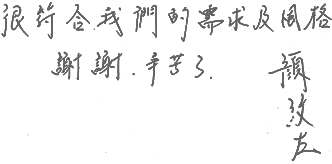 很符合我們的需求及風格
謝謝.辛苦了.
顏